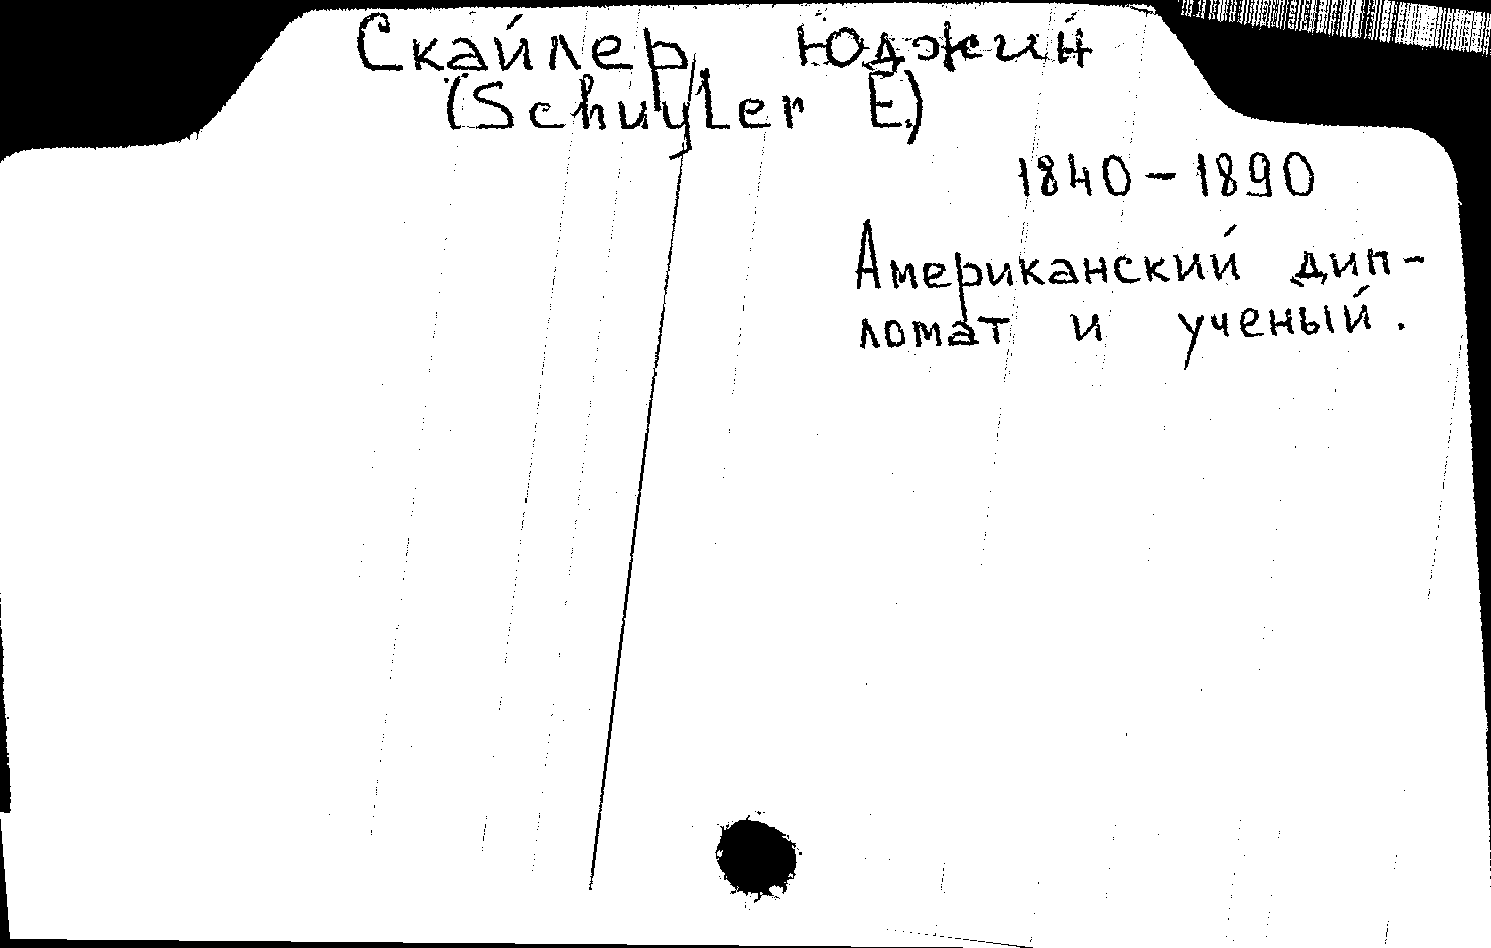 Скайлер, Юджин
(Schuyler E.)
1840-1890
Американский дип-
ломат и ученый.